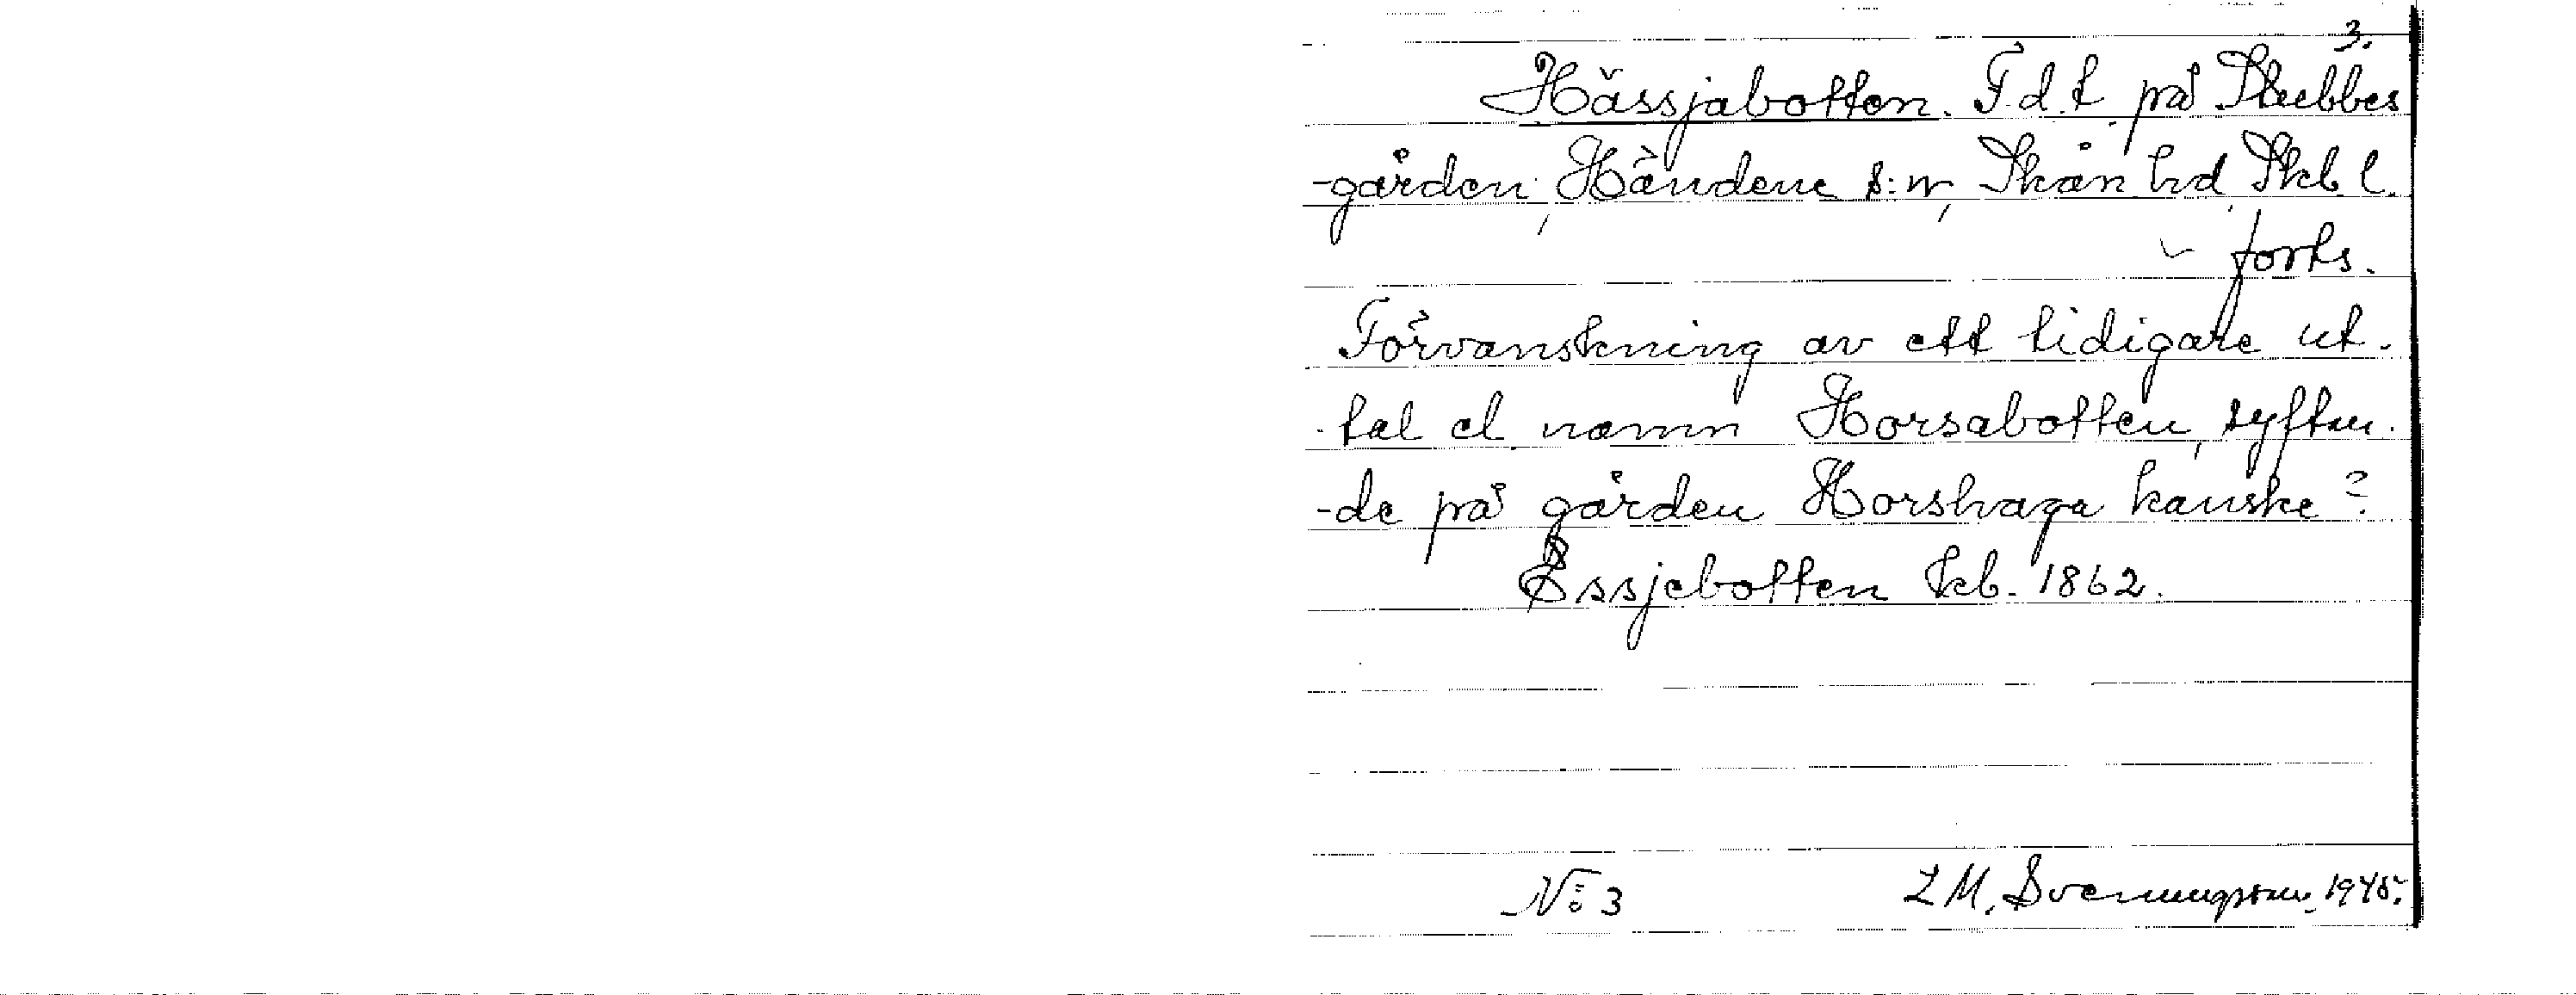 3.
Hässjabotten. F.d.t. på Stubbes
-gården, Händene s:n, Skån. hd, Skb. l.
forts.
Förvanskning av ett tidigare ut-
-tal el. namn Horsabotten, syftan-
-de på gården Horshaga kanske?
Essjebotten kb. 1862.
No 3 L M. Svenungsson 1945.